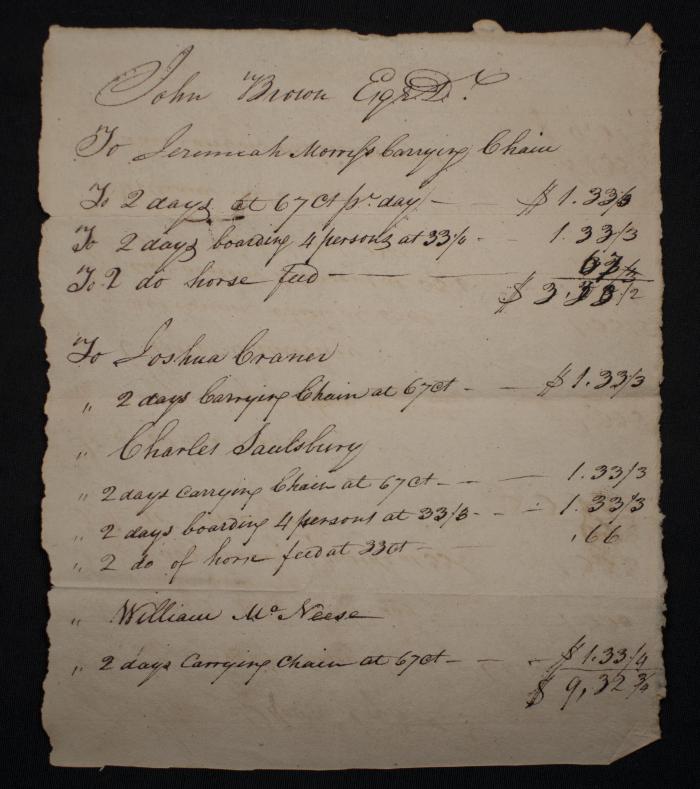 John Brown Esqr Dr.
To Jeremiah Morriss Carrying Chain
To 2 days at 67 Ct pr day — $1.33⅓
To 2 days boarding 4 persons at 33⅓ - 1.33/3
To 2 do horse feed —
$ 3.33½
To Joshua Craner
" 2 days Carrying Chain at 67 ct - — $1.33/3
" Charles Saulsbury
" 2 days carrying Chain at 67 Ct - — 1.33/3
" 2 days boarding 4 persons at 33⅓ - - 1.33/3
" 2 do of horse feed at 33 Ct - ,66
" William Mc Neese
" 2 days Carrying Chain at 67 Ct - — $1.33/4
$ 9,32 ¾